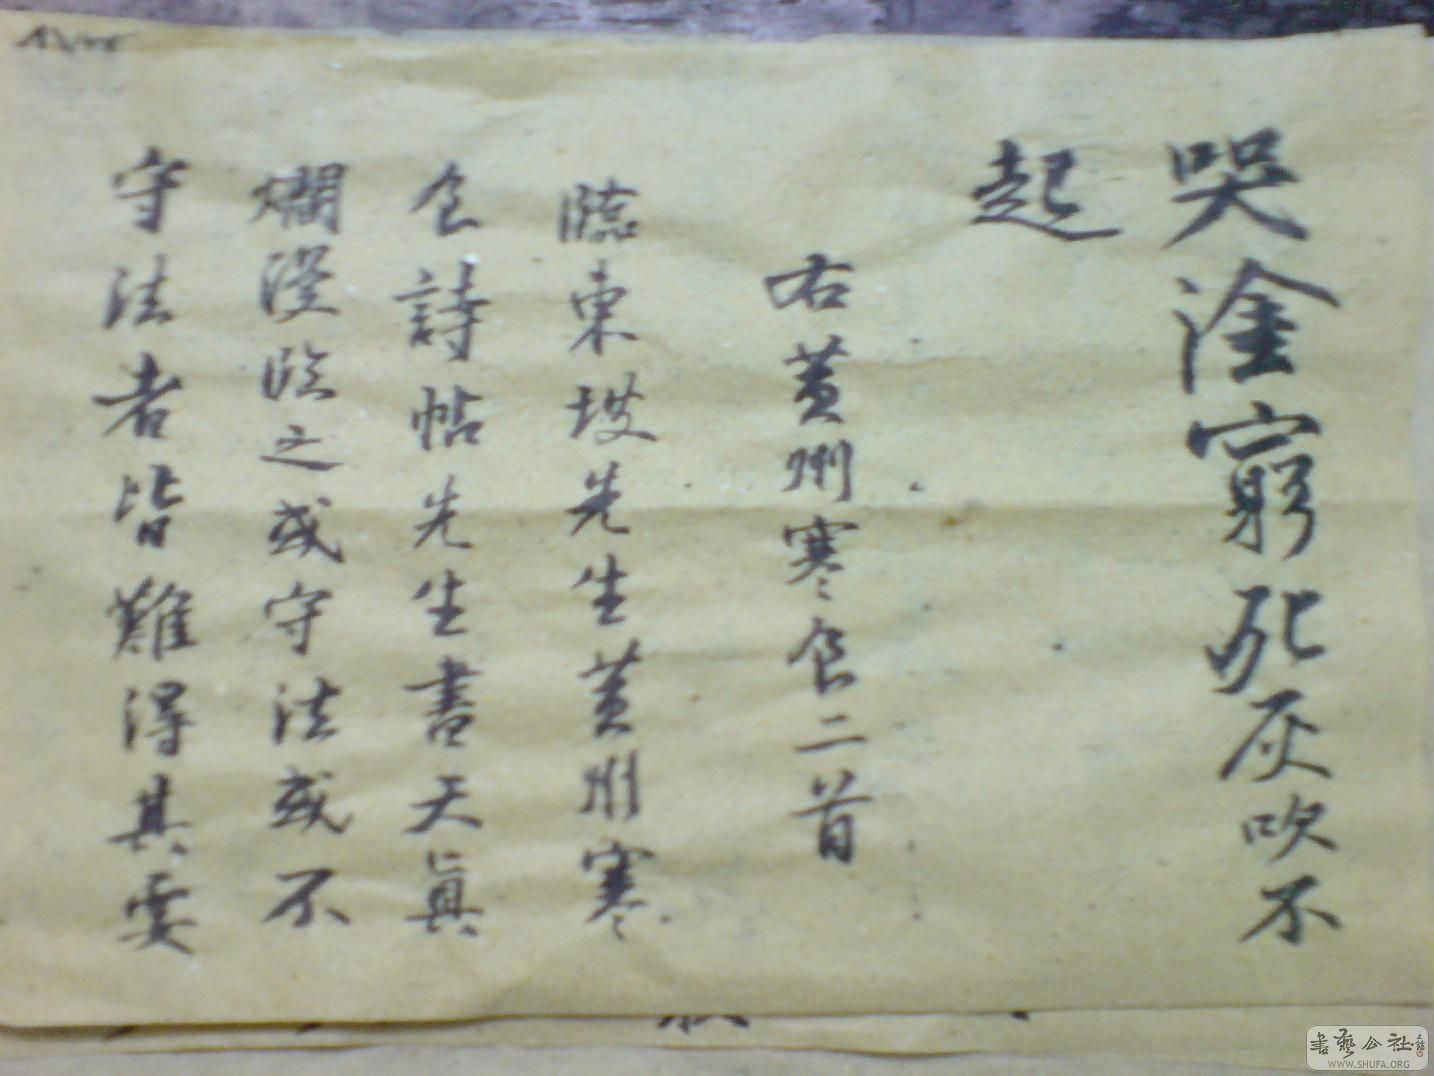 哭塗窮死灰吹不
起
右黃州寒食二首
臨東坡先生黃州寒
食詩帖先生書天真
爛漫臨之或守法或不
守法者皆難得其要
書藝公社
WWW.SHUFA.ORG